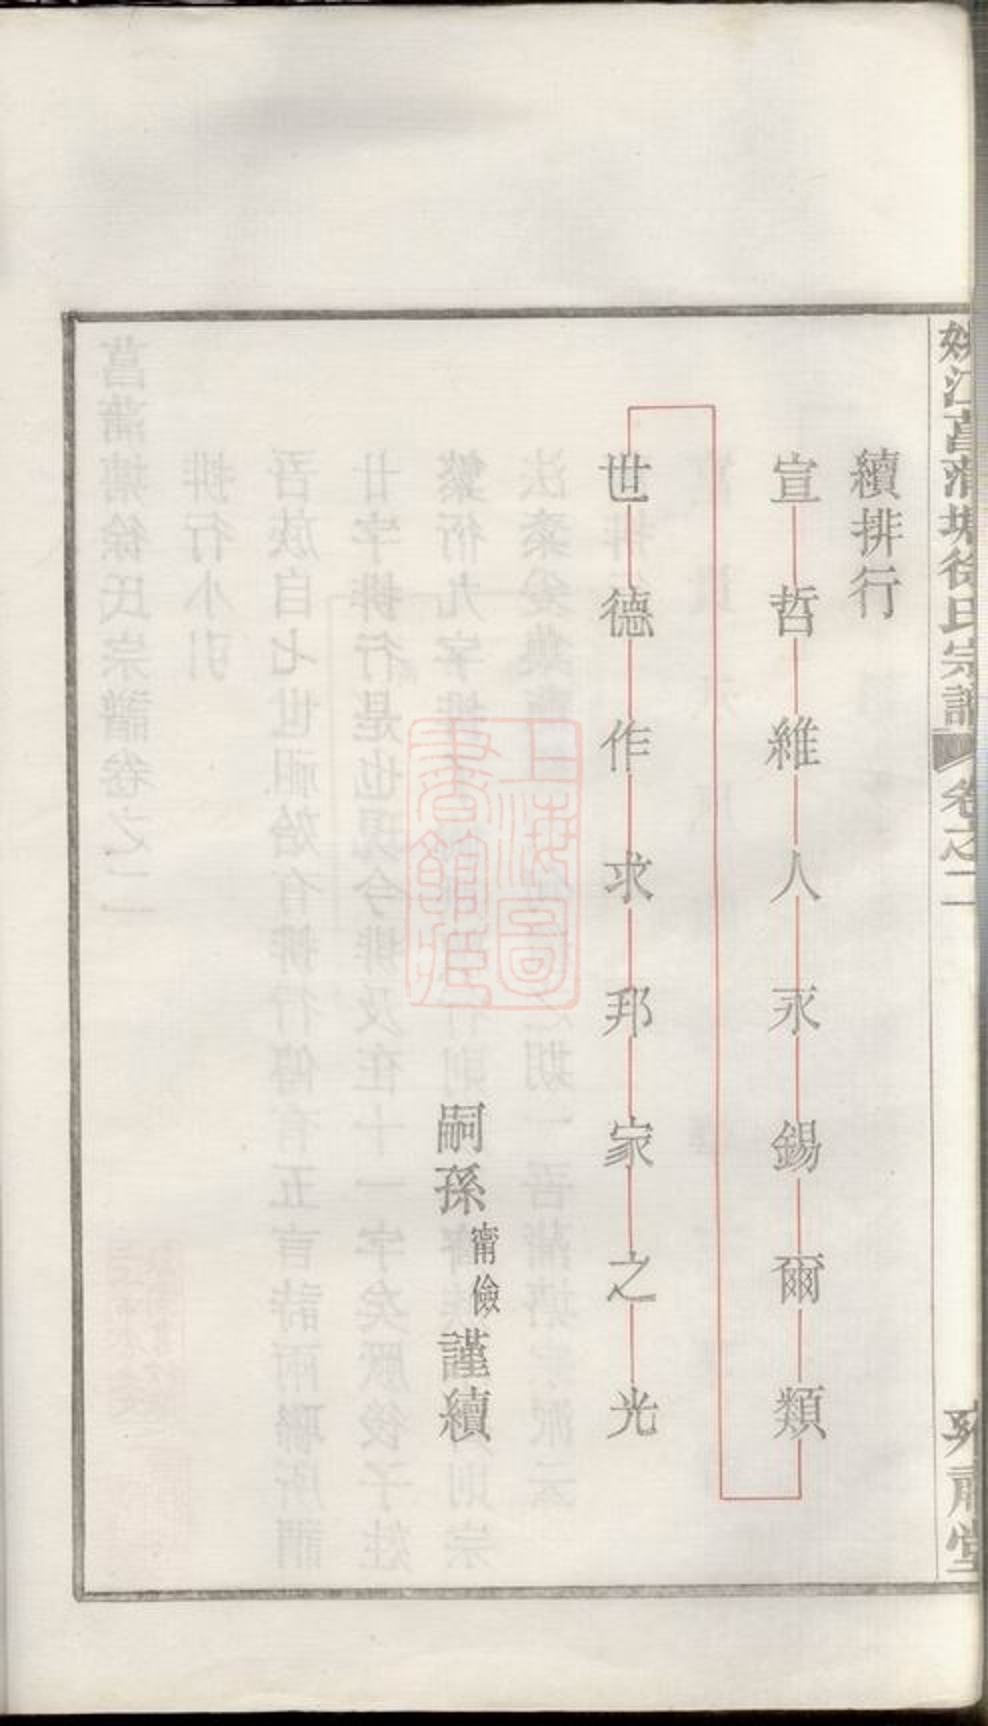 姚江菖蒲塘徐氏宗譜 卷之二
續排行
宣哲維人永錫爾類
世德作求邦家之光
嗣孫甯儉謹續
上海圖書館藏